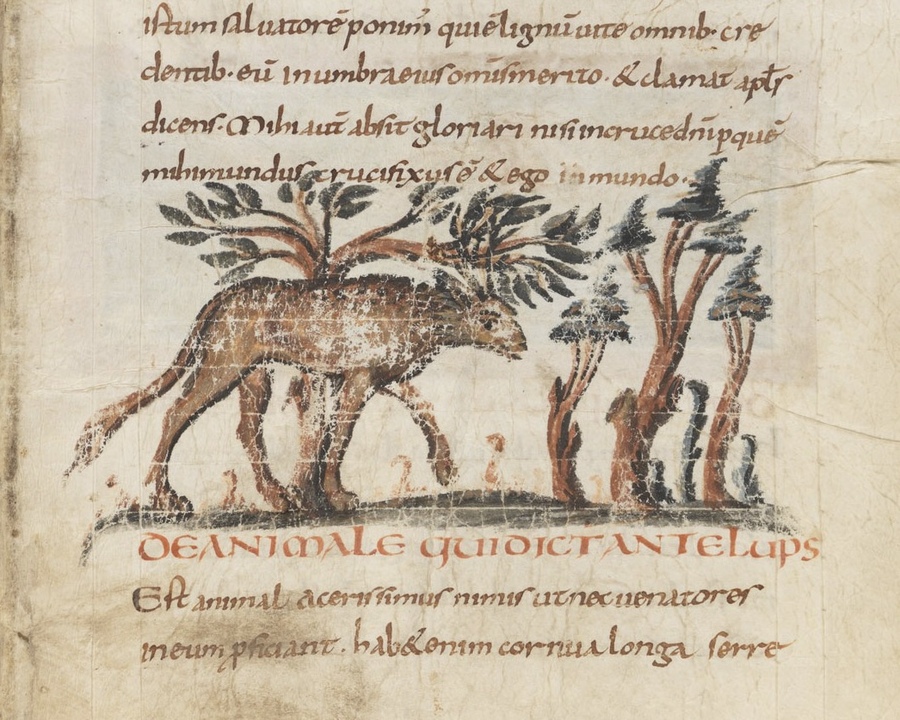 istum salvatorē ponim̄ qui ē lignū vite omnib· cre
dentib· eū in umbra eius om̄is merito· & clamat apl̄s
dicens· Mihi aut̄ absit gloriari nisi in cruce dn̄i p̱ quē
mihi mundus crucifixus ē & ego in mundo·
DE ANIMALE QUI DICT̄ ANTELUPS
Est animal acerissimus nimis ut nec venatores
in eum p̱ficiant· hab& enim cornua longa serre